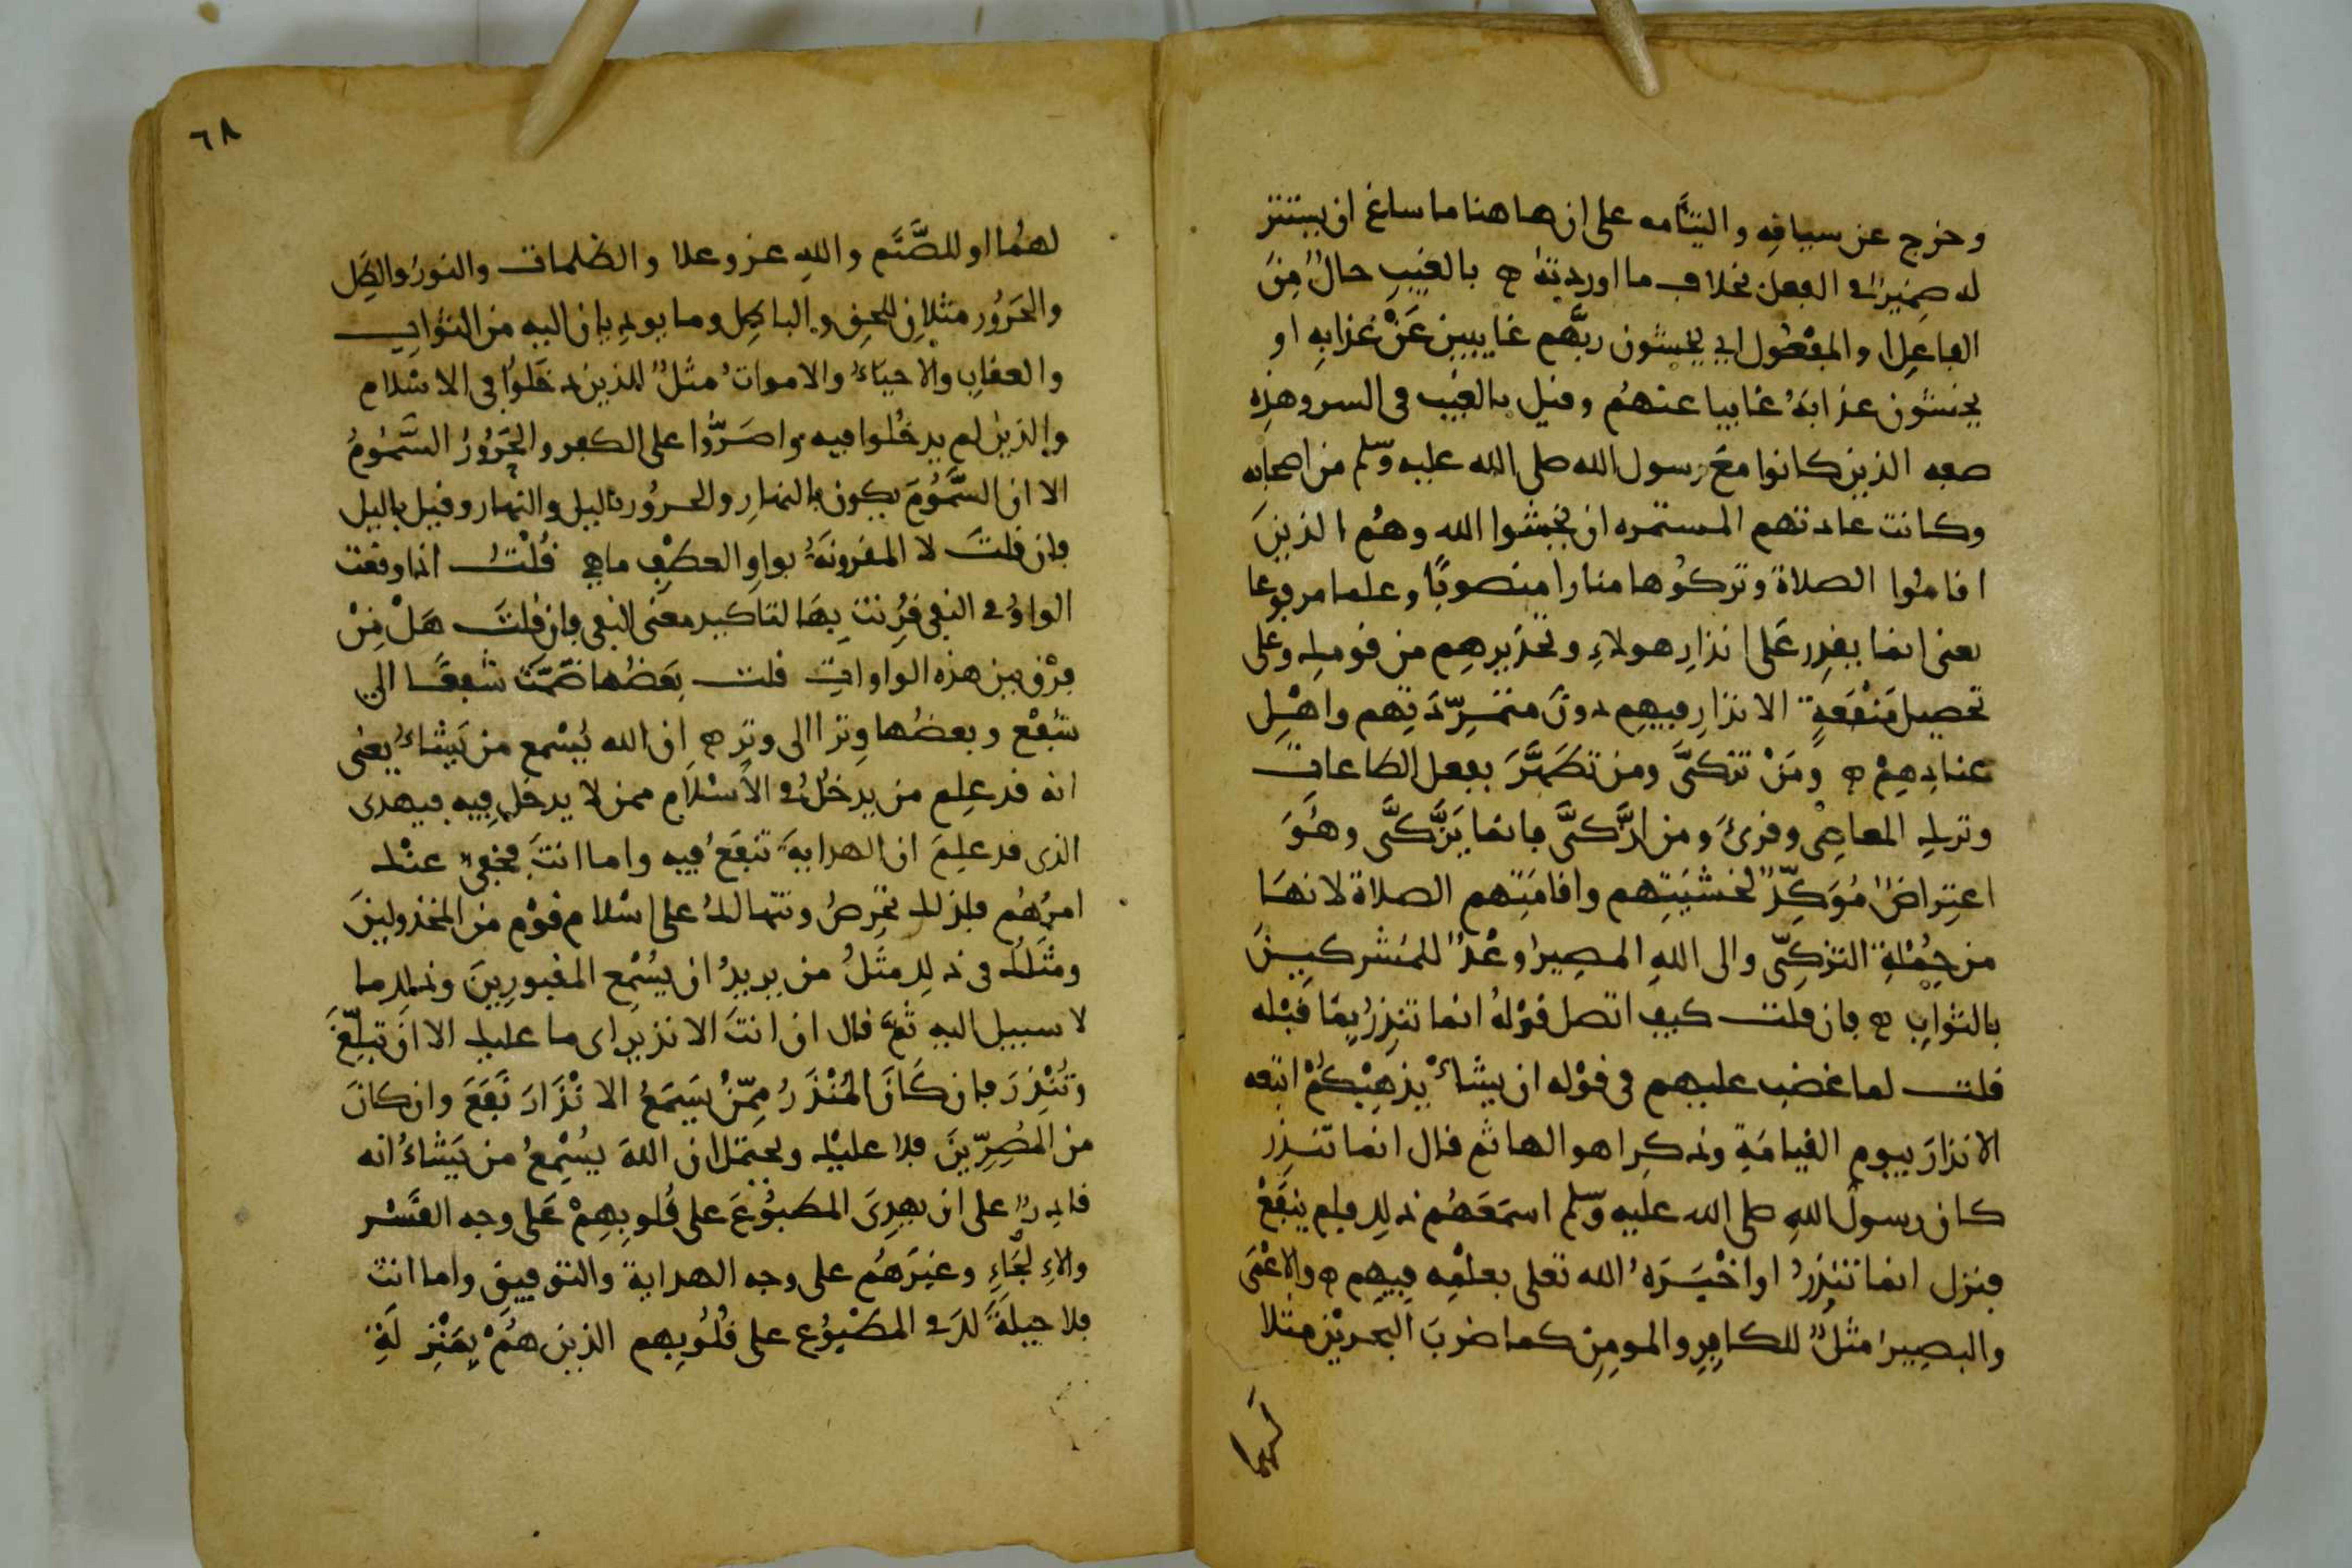 وخرج عن سياقه والتيامه على ان هاهنا ما ساغ ان يستتر
له ضمير في الفعل بخلاف ما اوردته ه بالغيب حال من
الفاعل او المفعول اي يخشون ربهم غايبين عن عذابه او
يخشون عذابه غايبا عنهم وقيل بالغيب في السر وهذه
صفه الذين كانوا مع رسول الله صلى الله عليه وسلم من اصحابه
وكانت عادتهم المستمره ان يخشوا الله وهم الذين
اقاموا الصلاة وتركوها منارا منصوبا وعلما مرفوعا
يعنى انما يقدر على انذار هولاء وتحذيرهم من قومك وعلى
تحصيل منفعة الانذار فيهم دون متمرديهم واهل
عنادهم ه ومن تزكى ومن تطهر بفعل الطاعات
وترك المعاصي وقرئ ومن ازكى فانما يزكى وهو
اعتراض موكد لخشيتهم واقامتهم الصلاة لانها
من جملة التزكى والى الله المصير وعد للمتركين
بالثواب ه فان قلت كيف اتصل قوله انما تنذر بما قبله
قلت لما غضب عليهم في قوله ان يشا يذهبكم اتبعه
الانذار بيوم القيامة وذكر اهوالها ثم قال انما تنذر
كان رسول الله صلى الله عليه وسلم اسمعهم ذلك فلم ينفع
فنزل انما تنذر او اخبره الله تعلى بعلمه فيهم ه والاعمى
والبصير مثل للكافر والمومن كما ضرب البحرين مثلا
لهما
٦٨
لهما او للصنم والله عز وعلا والظلمات والنور والظل
والحرور مثلان للحق والباطل وما يوديان اليه من الثواب
والعقاب والاحياء والاموات مثل للذين دخلوا في الاسلام
والذين لم يدخلوا فيه واصروا على الكفر والحرور السموم
الا ان السموم يكون بالنهار والحرور باليل والنهار وقيل باليل
فان قلت لا المقرونة بواو العطف ما هي قلت اذا وقعت
الواو في النفي قرنت بها لتاكيد معنى النفي فان قلت هل من
فرق بين هذه الواوات قلت بعضها ضمت شفعا الى
شفع وبعضها وترا الى وتر ه ان الله يسمع من يشاء يعنى
انه قد علم من يدخل في الاسلام ممن لا يدخل فيه فيهدى
الذى قد علم ان الهداية تنفع فيه واما انت فخفي عنك
امرهم فلذلك تحرص وتتهالك على اسلام قوم من المخذولين
ومثلك في ذلك مثل من يريد ان يسمع المقبورين وذلك ما
لا سبيل اليه ثم قال ان انت الا نذير اى ما عليك الا ان تبلغ
وتنذر فان كان المنذر ممن يسمع الانذار نفع وان كان
من المصرين فلا عليك ويحتمل ان الله يسمع من يشاء انه
قادر على ان يهدى المطبوع على قلوبهم على وجه القسر
والالجاء وغيرهم على وجه الهداية والتوفيق واما انت
فلا حيلة لك في المطبوع على قلوبهم الذين هم بمنزلة